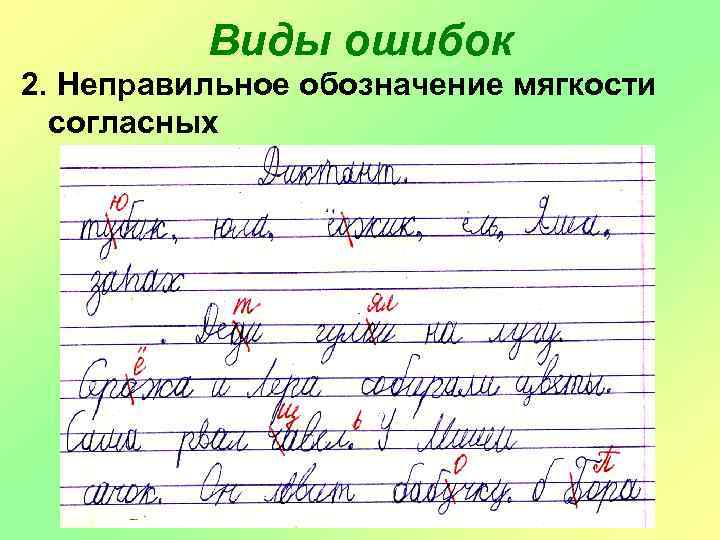 Виды ошибок
2. Неправильное обозначение мягкости
согласных
Диктант.
ю
тубик, юла, ёожик, ель, Яша,
запах
т ял
Деди гулки на лугу.
ё
Серожа и Лера собирали цветы.
щ ь
Саша рвал чавел. У Мишеи
о П
сачок. Он ловит бабучку. б Бора